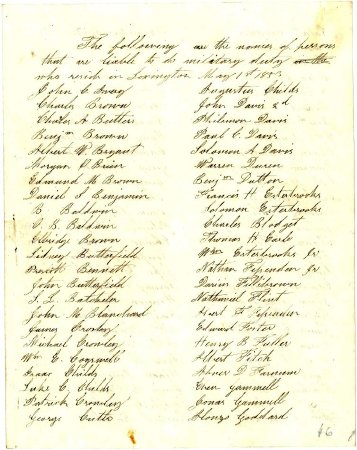 The following are the names of persons
that are liable to do military duty
who reside in Lexington May 1st
John C
Charles Brown
Charles A Butters
Benjn Brown
Albert W Bryant
Morgan
Edmund M Brown
Daniel S Benjamin
B Baldwin
Baldwin
Elbridg Brown
Sidney Butterfield
Bennett
John Butterfield
Batchelor
John M Blanchard
James Crowley
Michael Crowley
Wm E. Cogswell
Isaac Childs
Luke C. Childs
Patrick Crowley
George Cutler
Augustus Childs
John Davis 2d
Philemon Davis
Paul C. Davis
Solomon A Davis
Warren Duren
Benjn Dutton
Francis H Esterbrooks
Solomon Esterbrooks
Charles Blodget
Thomas H Earle
Wm Esterbrooks Jr
Nathan Fessenden Jr
Davis Fillebrown
Nathaniel Flint
Fessenden
Edward Foster
Henry B Fuller
Albert Fitch
Abner D Farnum
Eben Gammell
Jonas Gammell
Alonzo Goddard
46